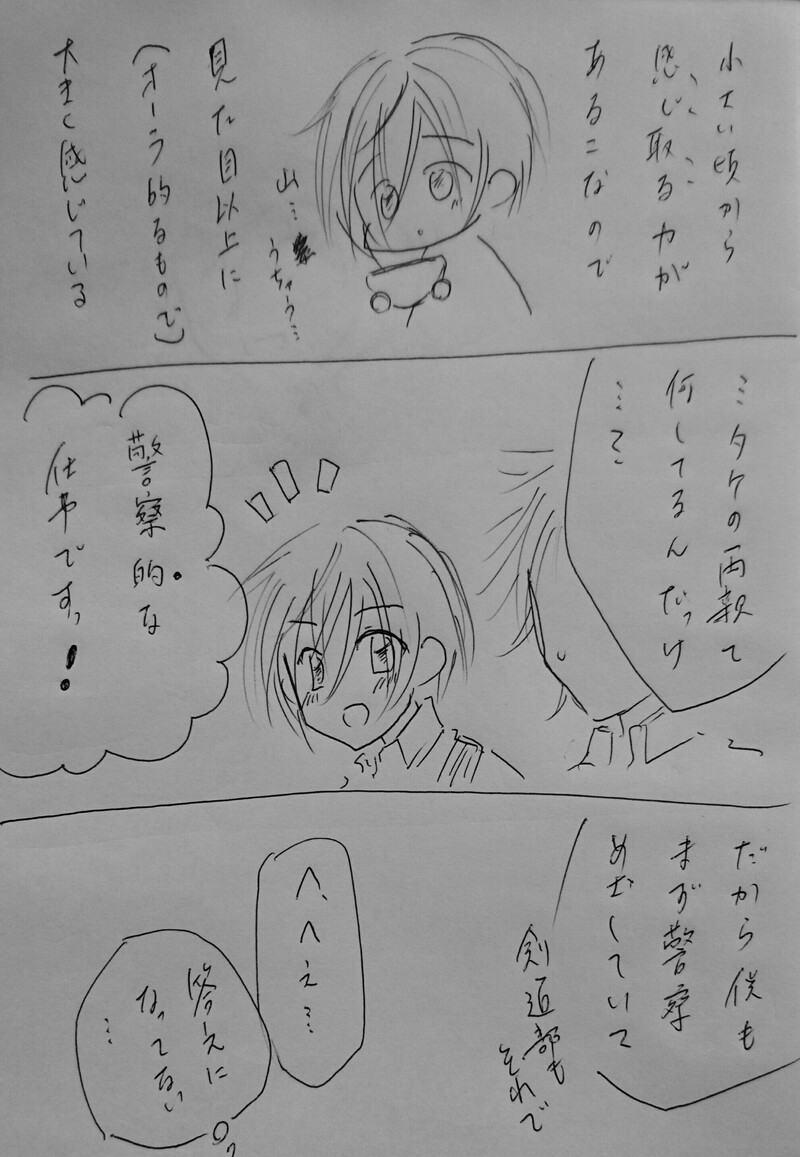 小さい頃から
感じ取る力が
あるこなので
見た目以上に
(オーラ的るもので)
大きく感じている
山…
うちゅう…
ミタケの両親て
何してるんだっけ
……
警察的な
仕事ですっ!
だから僕も
まず警察
めざしていて
剣道部も
それで
へ、へえ…
答えに
なってない
…